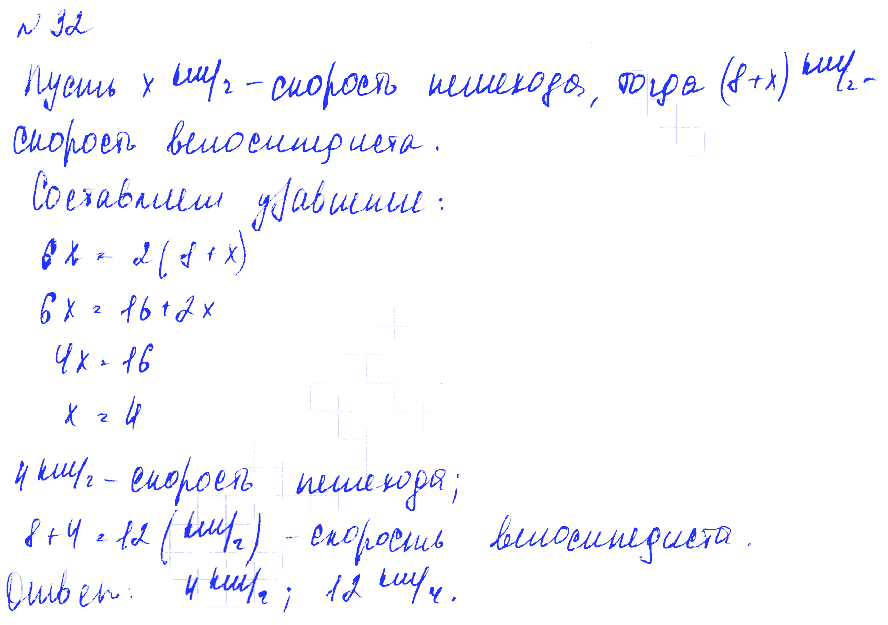 № 32
Пусть x км/ч – скорость пешехода, тогда (8+x) км/ч –
скорость велосипедиста.
Составляем уравнение:
6x = 2(8+x)
6x = 16+2x
4x = 16
x = 4
4 км/ч – скорость пешехода;
8+4=12 (км/ч) – скорость велосипедиста.
Ответ: 4 км/ч; 12 км/ч.